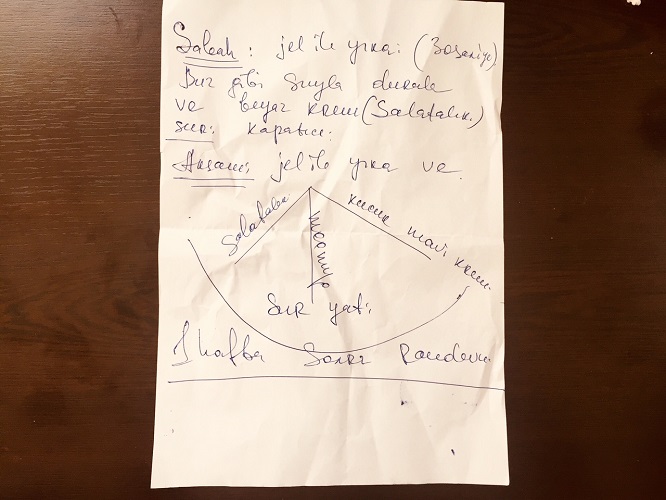 Sabah: jel ile yıka: (30 saniye)
Buz gibi suyla durula
ve beyaz krem (Salatalık)
sür: kapatıcı:
Akşam: jel ile yıka ve
Salatalık
kucuk mavi krem
Sür yat:
1 hafta Sonra Randevu